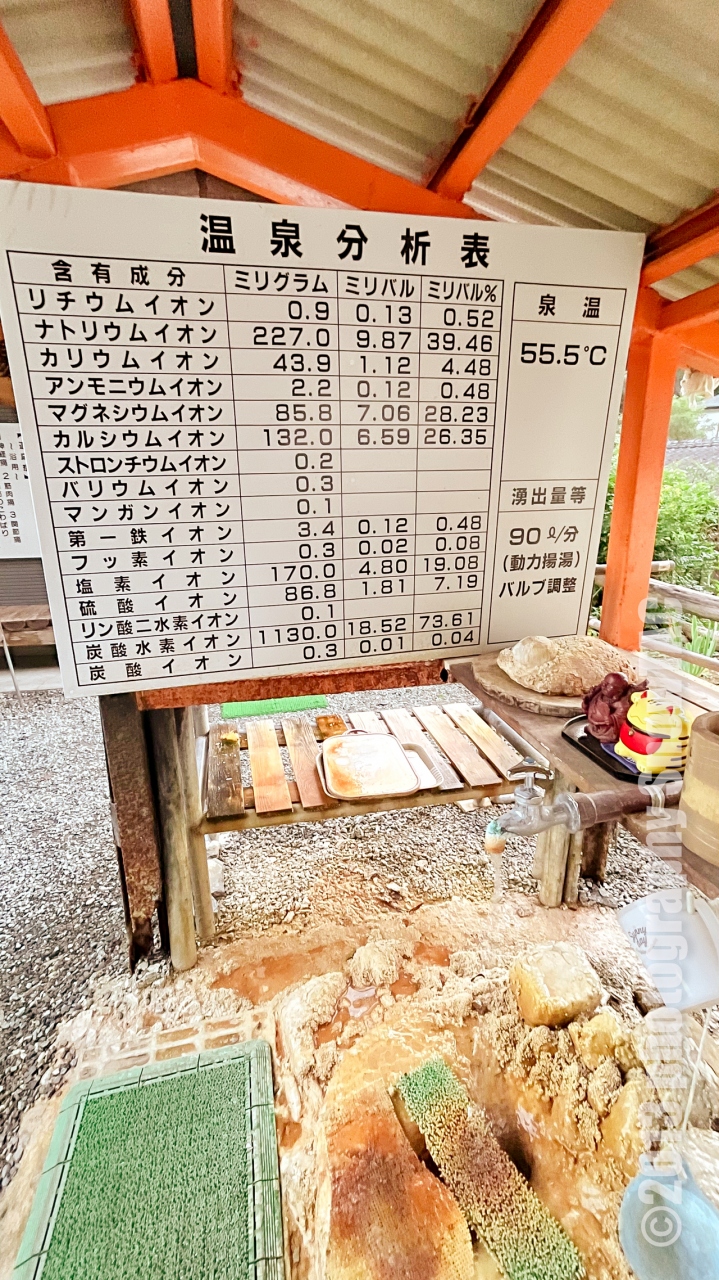 温泉分析表
含有成分 ミリグラム ミリバル ミリバル%
リチウムイオン 0.9 0.13 0.52
ナトリウムイオン 227.0 9.87 39.46
カリウムイオン 43.9 1.12 4.48
アンモニウムイオン 2.2 0.12 0.48
マグネシウムイオン 85.8 7.06 28.23
カルシウムイオン 132.0 6.59 26.35
ストロンチウムイオン 0.2
バリウムイオン 0.3
マンガンイオン 0.1
第一鉄イオン 3.4 0.12 0.48
フッ素イオン 0.3 0.02 0.08
塩素イオン 170.0 4.80 19.08
硫酸イオン 86.8 1.81 7.19
リン酸二水素イオン 0.1
炭酸水素イオン 1130.0 18.52 73.61
炭酸イオン 0.3 0.01 0.04
泉温
55.5℃
湧出量等
90ℓ/分
(動力揚湯)
バルブ調整